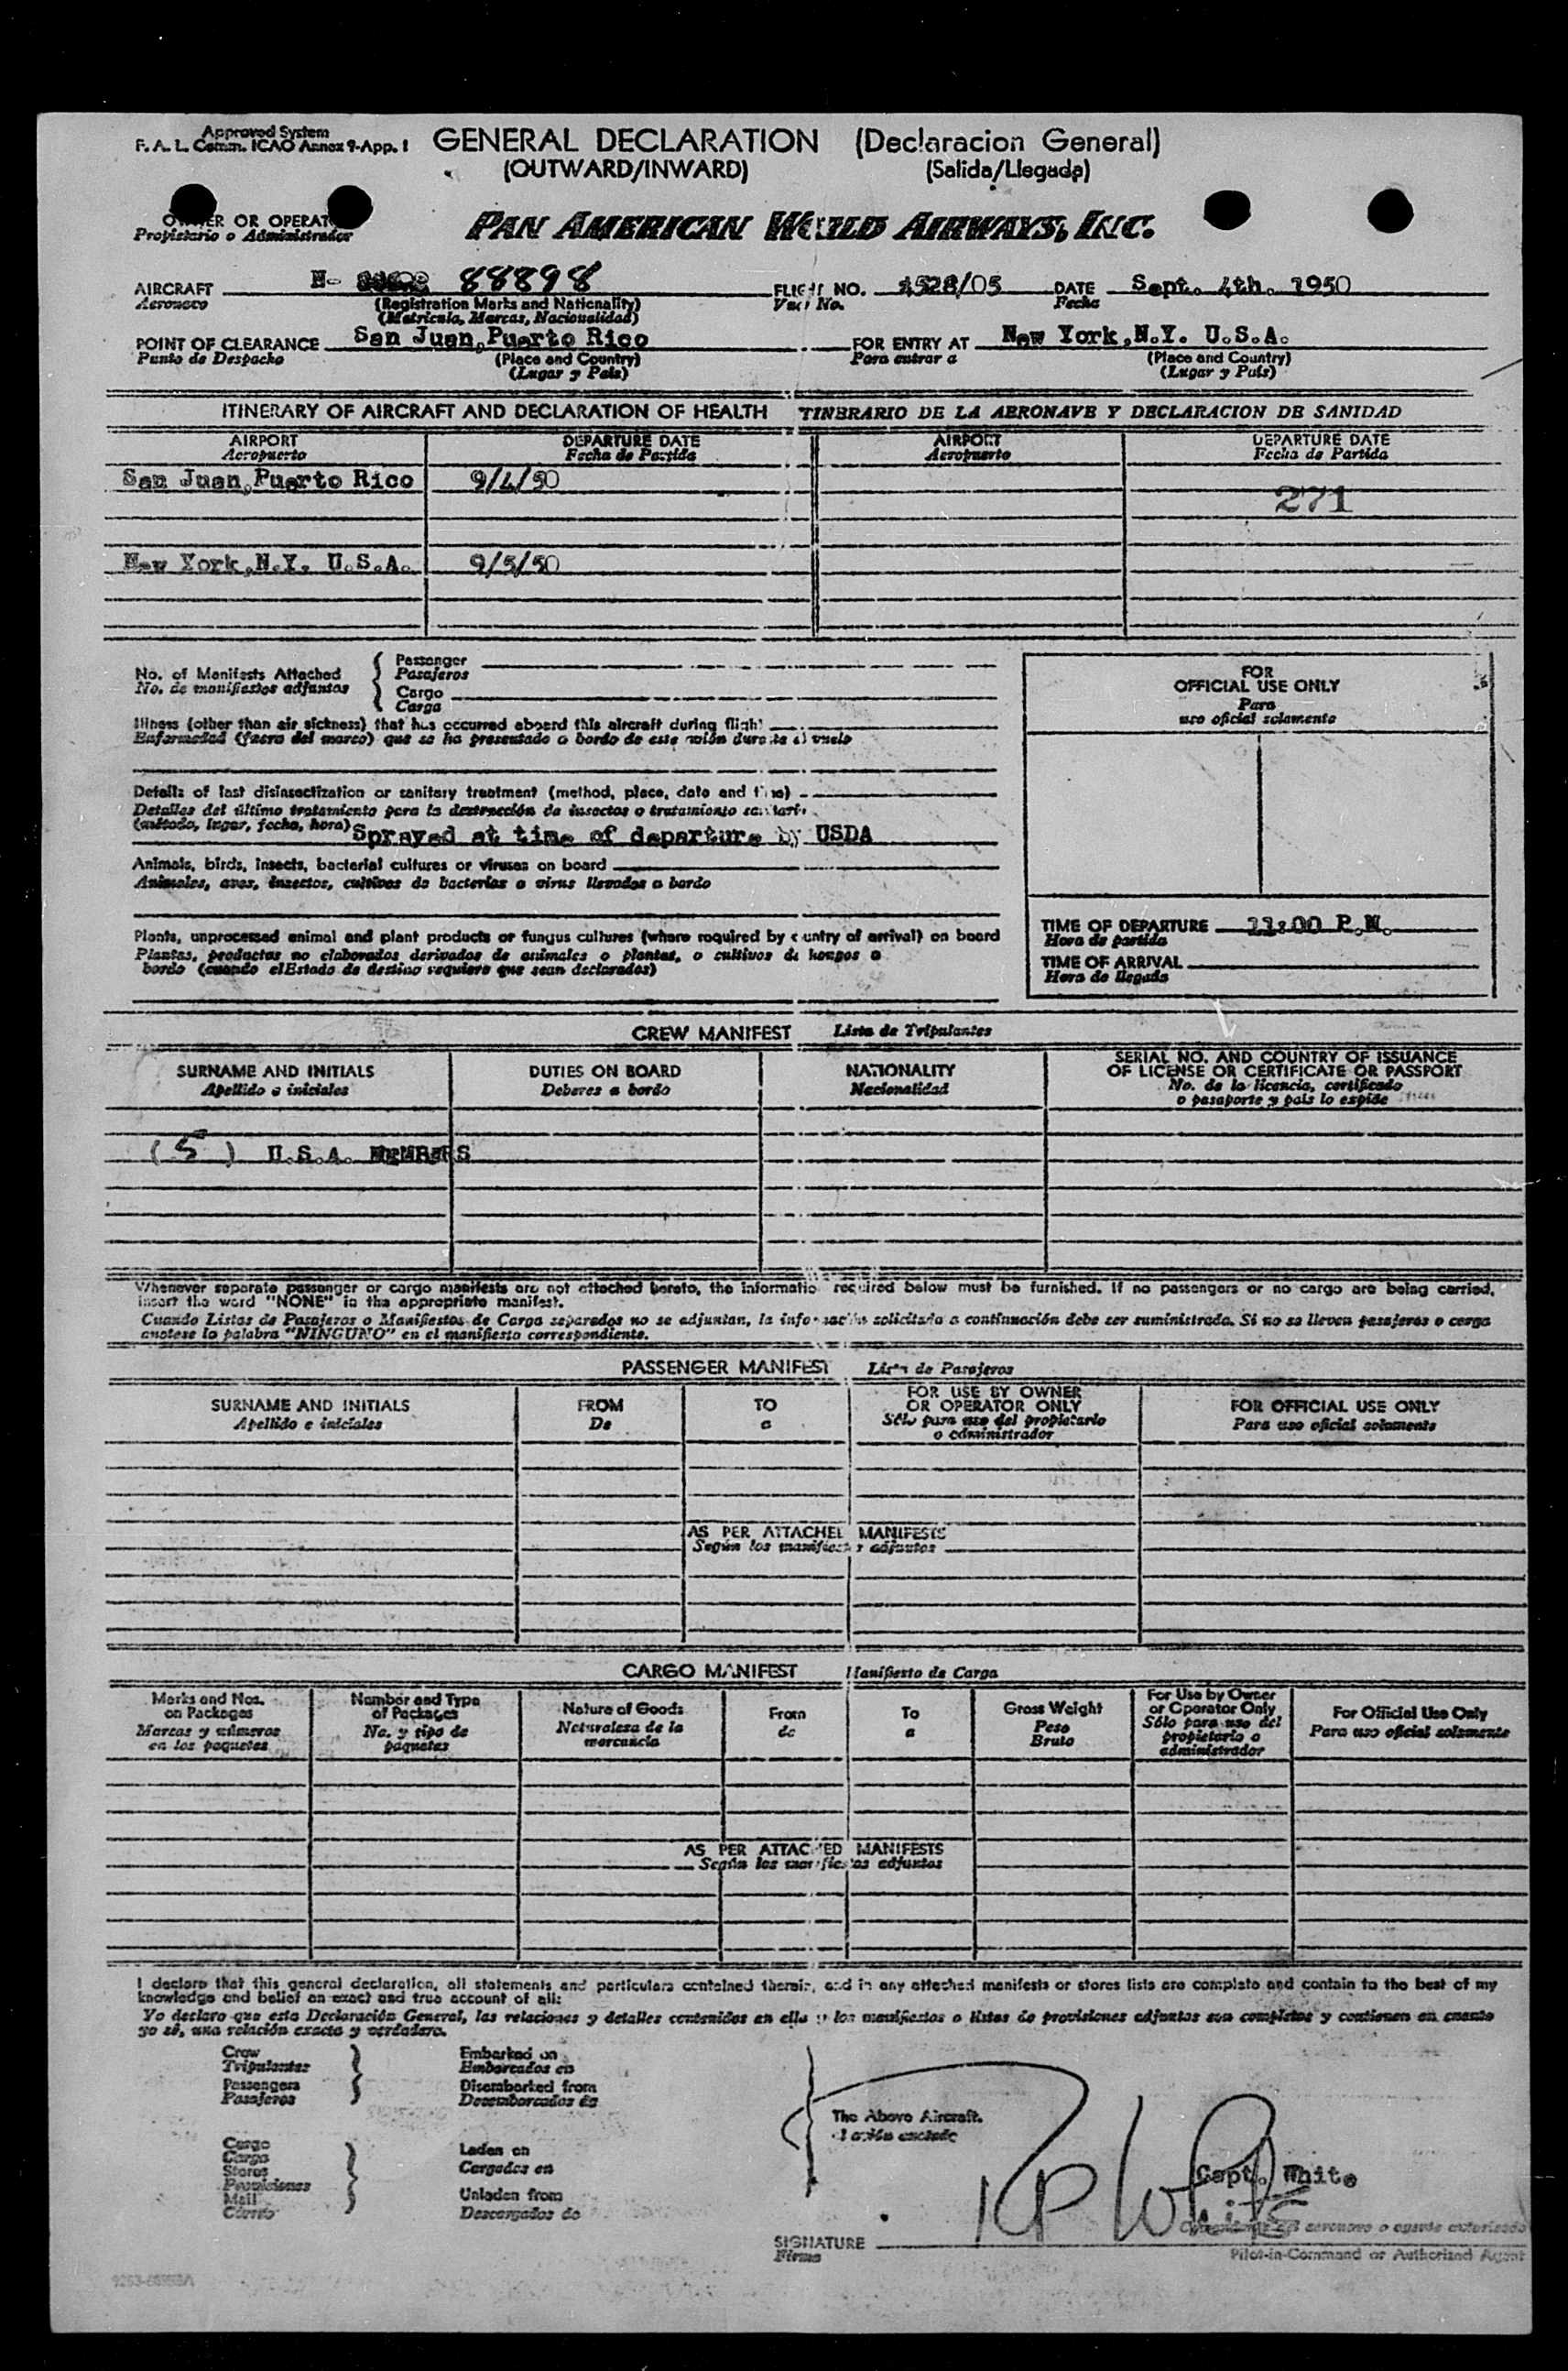 Approved System
F. A. L. Comm. ICAO Annex 9-App. 1
GENERAL DECLARATION (Declaracion General)
(OUTWARD/INWARD) (Salida/Llegada)
OWNER OR OPERATOR PAN AMERICAN WORLD AIRWAYS, INC.
Propietario o Administrador
AIRCRAFT N- 88898 FLIGHT NO. 4528/05 DATE Sept. 4th. 1950
Aeronave (Registration Marks and Nationality) Vuelo No. Fecha
(Matricula, Marcas, Nacionalidad)
POINT OF CLEARANCE San Juan, Puerto Rico FOR ENTRY AT New York, N.Y. U.S.A.
Punto de Despacho (Place and Country) Para entrar a (Place and Country)
(Lugar y Pais) (Lugar y Pais)
ITINERARY OF AIRCRAFT AND DECLARATION OF HEALTH TINERARIO DE LA AERONAVE Y DECLARACION DE SANIDAD
AIRPORT DEPARTURE DATE AIRPORT DEPARTURE DATE
Aeropuerto Fecha de Partida Aeropuerto Fecha de Partida
San Juan, Puerto Rico 9/4/50
271
New York, N.Y. U.S.A. 9/5/50
No. of Manifests Attached
No. de manifiestos adjuntos
Passenger
Pasajeros
Cargo
Carga
FOR
OFFICIAL USE ONLY
Para
uso oficial solamente
Illness (other than air sickness) that has occurred aboard this aircraft during flight
Enfermedad (fuera del mareo) que se ha presentado a bordo de este avión durante el vuelo
Details of last disinsectization or sanitary treatment (method, place, date and time)
Detalles del último tratamiento para la destrucción de insectos o tratamiento sanitario
(método, lugar, fecha, hora) Sprayed at time of departure by USDA
Animals, birds, insects, bacterial cultures or viruses on board
Animales, aves, insectos, cultivos de bacterias o virus llevados a bordo
Plants, unprocessed animal and plant products or fungus cultures (where required by country of arrival) on board
Plantas, productos no elaborados derivados de animales o plantas, o cultivos de hongos a
bordo (cuando el Estado de destino requiere que sean declarados)
TIME OF DEPARTURE 11:00 P.M.
Hora de partida
TIME OF ARRIVAL
Hora de llegada
CREW MANIFEST Lista de Tripulantes
SURNAME AND INITIALS DUTIES ON BOARD NATIONALITY SERIAL NO. AND COUNTRY OF ISSUANCE
Apellido e iniciales Deberes a bordo Nacionalidad OF LICENSE OR CERTIFICATE OR PASSPORT
No. de la licencia, certificado
o pasaporte y pais lo expide
( 5 ) U.S.A. MEMBERS
Whenever separate passenger or cargo manifests are not attached hereto, the information required below must be furnished. If no passengers or no cargo are being carried,
insert the word "NONE" in the appropriate manifest.
Cuando Listas de Pasajeros o Manifiestos de Carga separados no se adjuntan, la información solicitada a continuación debe ser suministrada. Si no se llevan pasajeros o carga
anotese la palabra "NINGUNO" en el manifiesto correspondiente.
PASSENGER MANIFEST Lista de Pasajeros
SURNAME AND INITIALS FROM TO FOR USE BY OWNER FOR OFFICIAL USE ONLY
Apellido e iniciales De a OR OPERATOR ONLY Para uso oficial solamente
Sólo para uso del propietario
o administrador
AS PER ATTACHED MANIFESTS
Según los manifiestos adjuntos
CARGO MANIFEST Manifiesto de Carga
Marks and Nos. on Packages
Marcas y números en los paquetes
Number and Type of Packages
No. y tipo de paquetes
Nature of Goods
Naturaleza de la mercancia
From
de
To
a
Gross Weight
Peso Bruto
For Use by Owner or Operator Only
Sólo para uso del propietario o administrador
For Official Use Only
Para uso oficial solamente
AS PER ATTACHED MANIFESTS
Según los manifiestos adjuntos
I declare that this general declaration, all statements and particulars contained therein, and in any attached manifests or stores lists are complete and contain to the best of my
knowledge and belief an exact and true account of all:
Yo declaro que esta Declaración General, las relaciones y detalles contenidos en ella y los manifiestos o listas de provisiones adjuntas son completos y contienen en cuanto
yo sé, una relación exacta y verdadera.
Crew Embarked on
Tripulantes Embarcados en
Passengers Disembarked from
Pasajeros Desembarcados de
The Above Aircraft.
Cargo
Carga
Stores
Provisiones
Mail
Correo
Laden on
Cargados en
Unladen from
Descargados de
RP White
Capt. White
SIGNATURE
Firma
Comandante del aeronave o agente autorizado
Pilot-in-Command or Authorized Agent